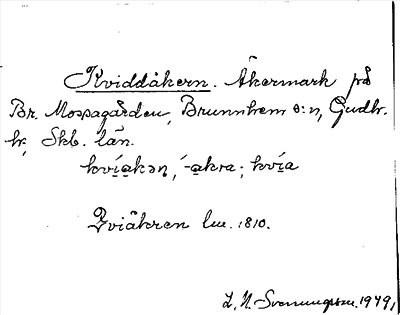 Kviddåkern. Åkermark på
Br. Mossagården, Brunnhem s:n, Gudh.
h., Skb. län.
kvi̱a̱kən, ́-a̱kra; kvi̱a
Qviåkren lm. 1810.
L. N. Svenungsson. 1949,